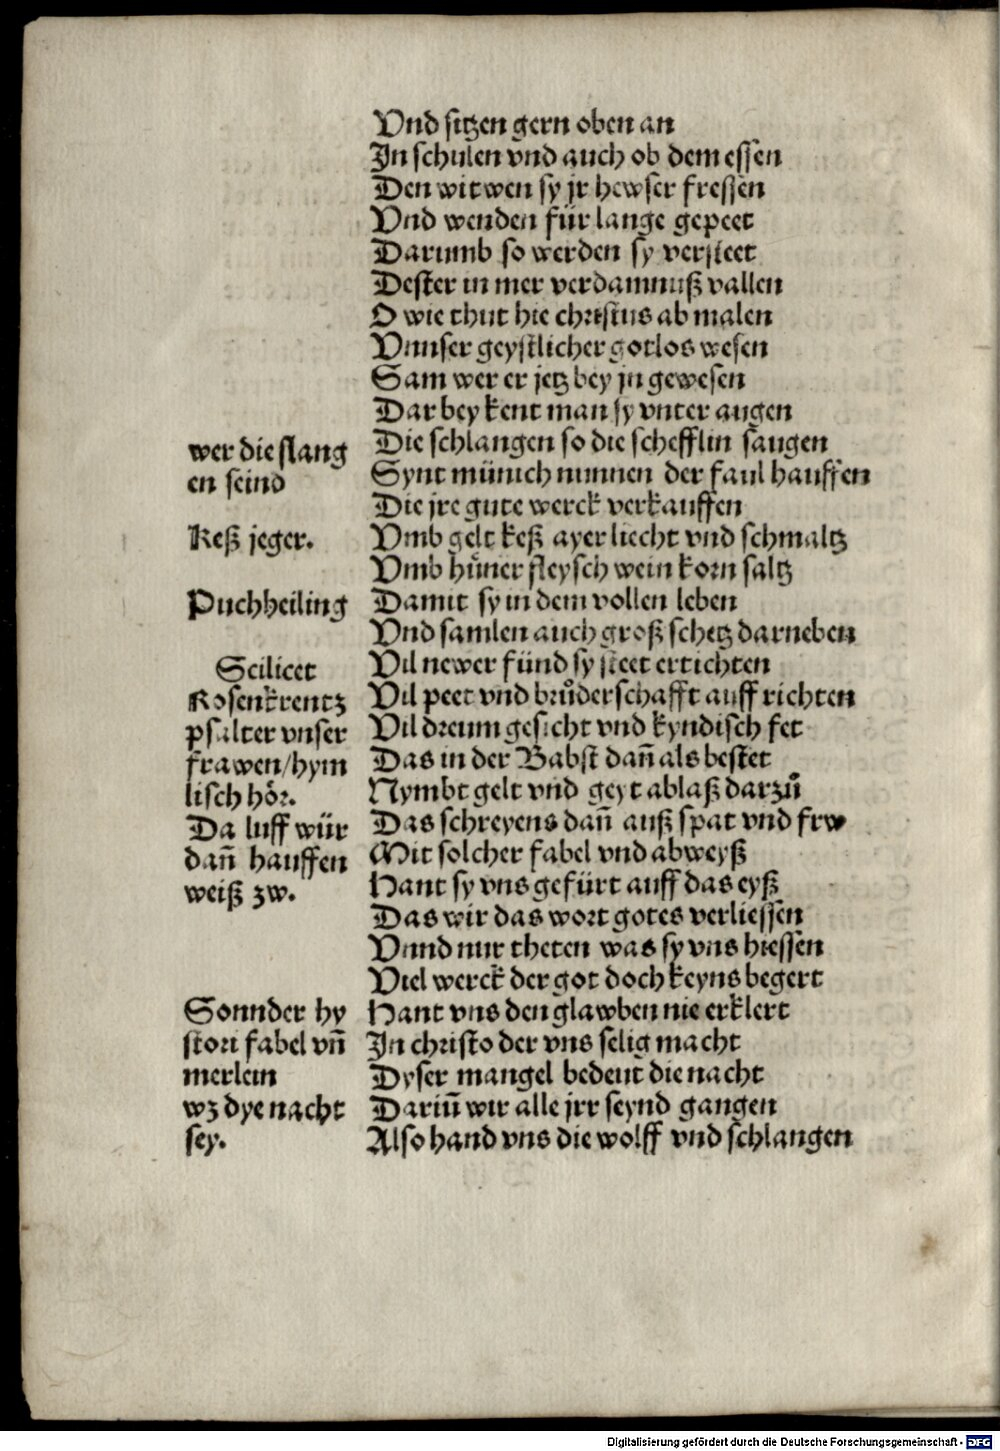 Vnd sitzen gern oben an
In schulen vnd auch ob dem essen
Den witwen sy jr hewser fressen
Vnd wenden für lange gepeet
Darumb so werden sy versteet
Dester in mer verdamnuß vallen
O wie thut hie christus ab malen
Vnnser geystlicher gotlos wesen
Sam wer er jetz bey jn gewesen
Dar bey kent man sy vnter augen
wer die slang
en seind
Die schlangen so die schefflin saugen
Synt münich nunnen der faul hauffen
Die jre gute werck verkauffen
Keß jeger.
Vmb gelt keß ayer liecht vnd schmaltz
Vmb hüner fleysch wein korn saltz
Puchheiling
Damit sy in dem vollen leben
Vnd samlen auch groß schetz darneben
Scilicet
Rosenkrentz
psalter vnser
frawen/hym
lisch hör.
Da luff wür
dañ hauffen
weiß zw.
Vil newer fünd sy steet ertichten
Vil peet vnd brůderschafft auff richten
Vil dreum gesicht vnd kyndisch fet
Das in der Babst dañ als bestet
Nymbt gelt vnd geyt ablaß darzů
Das schreyens dañ auß spat vnd frw
Mit solcher fabel vnd abweyß
Hant sy vns gefürt auff das eyß
Das wir das wort gotes verliessen
Vnnd nur theten was sy vns hiessen
Viel werck der got doch keyns begert
Sonnder hy
stori fabel vñ
merlein
wz dye nacht
sey.
Hant vns den glawben nie erklert
In christo der vns selig macht
Dyser mangel bedeut die nacht
Dariñ wir alle jrr seynd gangen
Also hand vns die wolff vnd schlangen
Digitalisierung gefördert durch die Deutsche Forschungsgemeinschaft - DFG